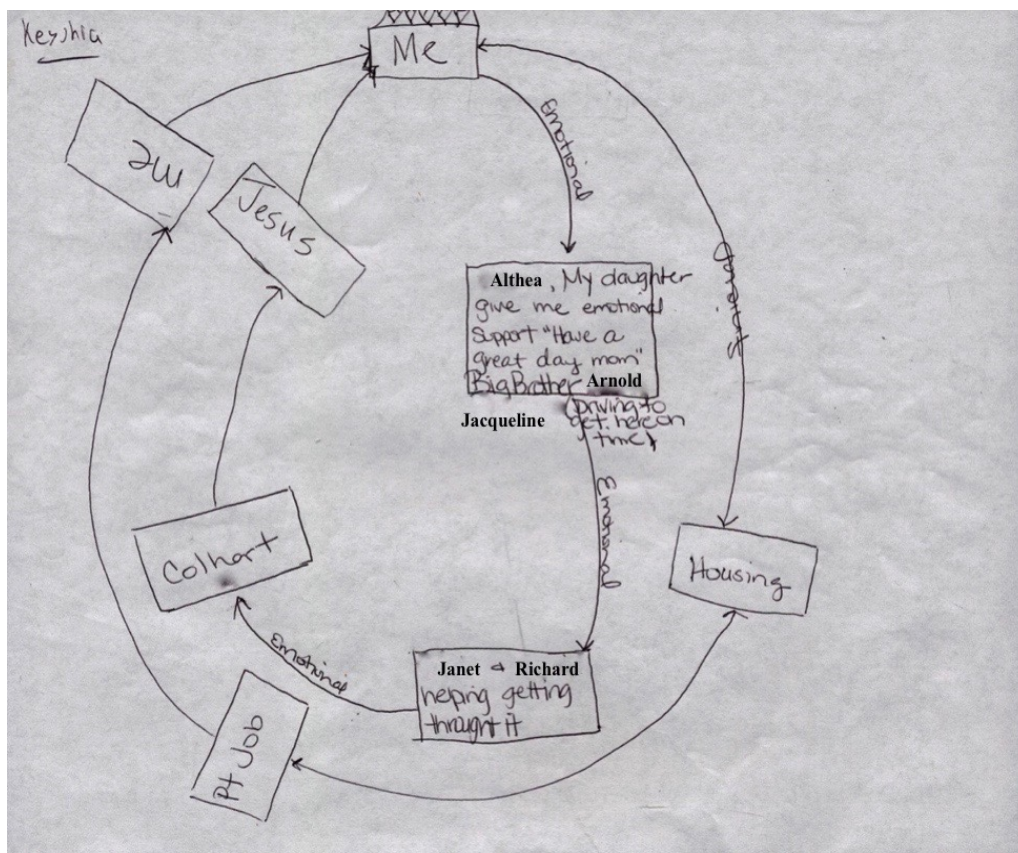 Keyshia
Me
me
Jesus
Emotional
Althea, My daughter
give me emotional
Support "Have a
great day mom"
Big Brother Arnold
Jacqueline
(Driving to
get here on
time)
Emotional
Colhart
Housing
Emotional
Janet & Richard
helping getting
throught it
Pt Job